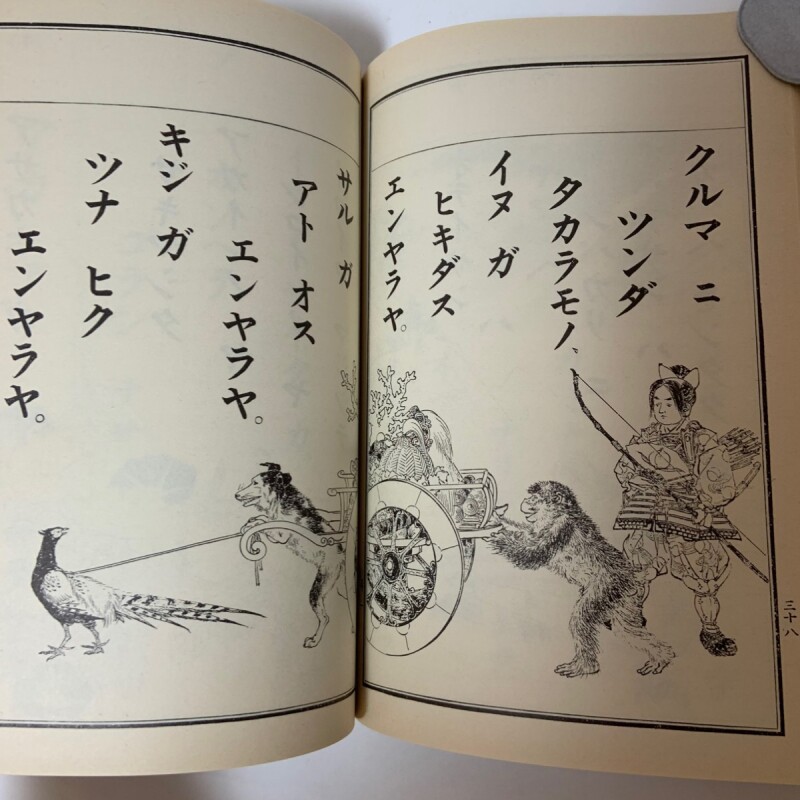 クルマ ニ
ツンダ
タカラモノ、
イヌ ガ
ヒキダス
エンヤラヤ。
サル ガ
アト オス
エンヤラヤ。
キジ ガ
ツナ ヒク
エンヤラヤ。
三十八